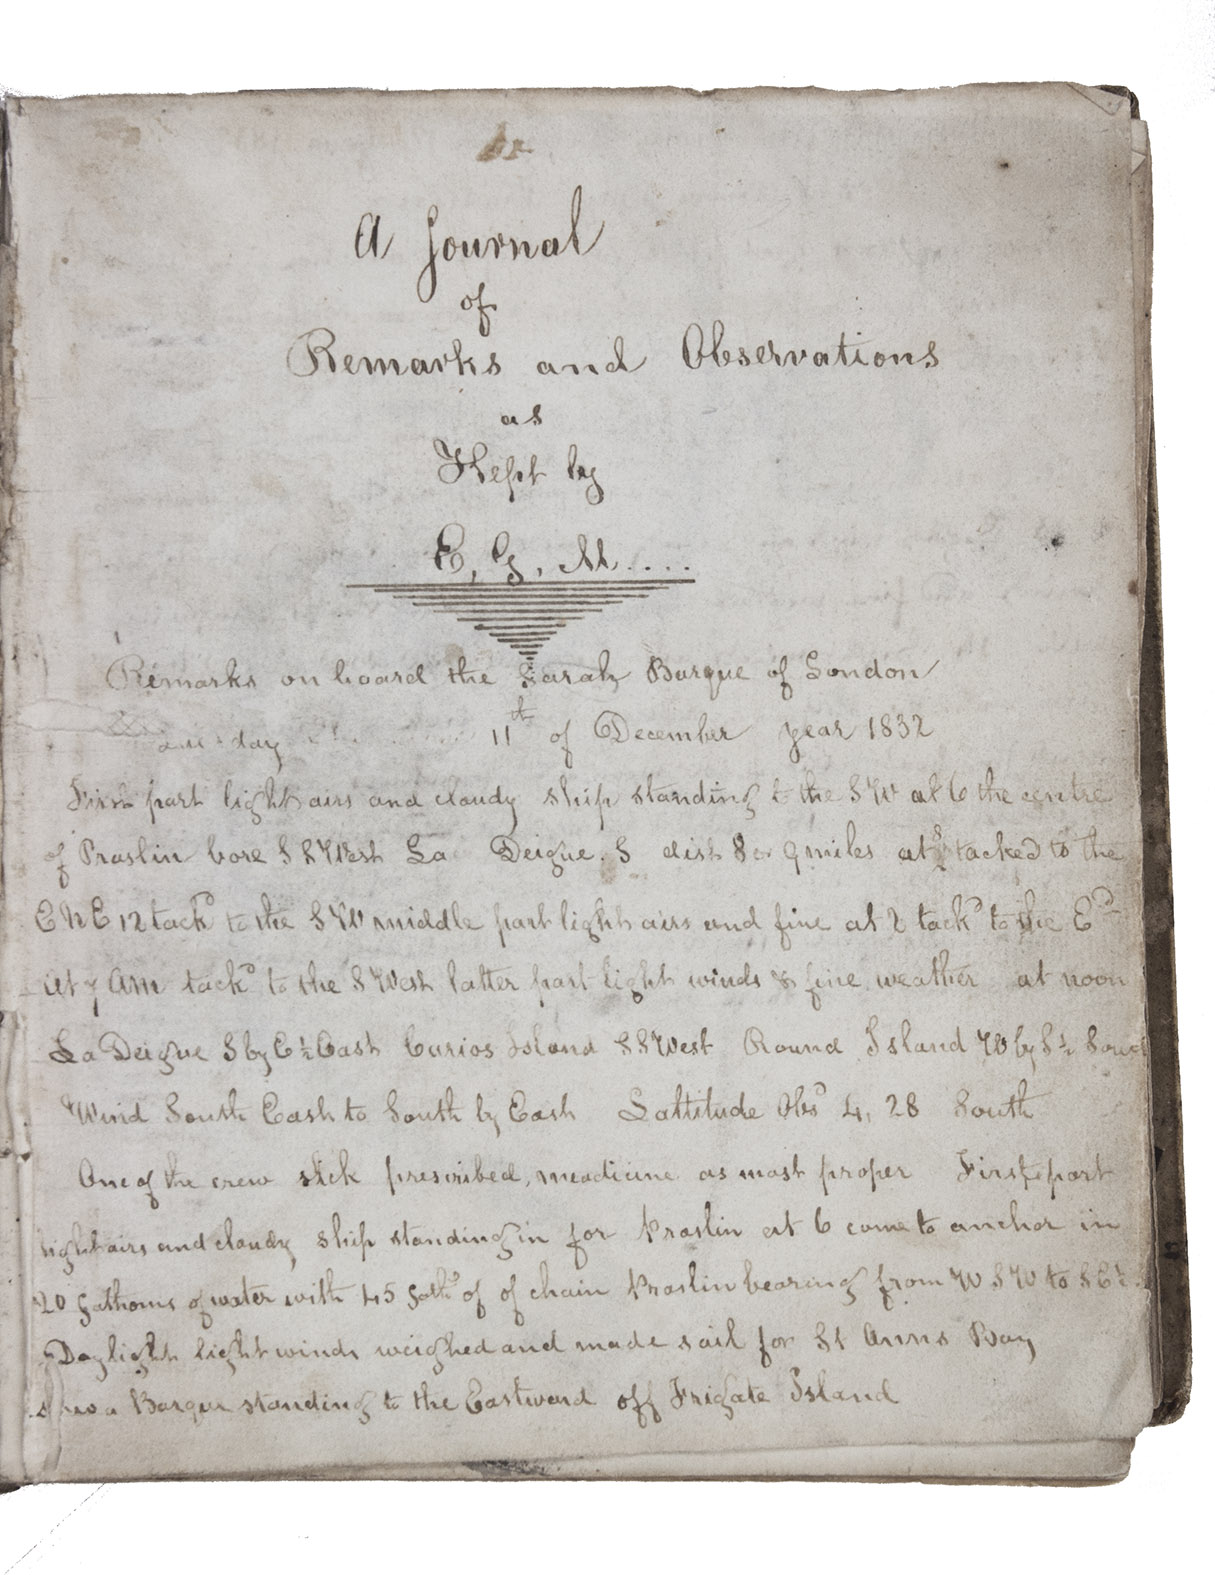 A Journal
of
Remarks and Observations
as
Kept by
E, G, M....
Remarks on board the Sarah Barque of London
day 11th of December year 1832
First part light airs and cloudy ship standing to the S W at 6 the centre
of Praslin bore S S West La Deigue S dist 8 or 9 miles at 8 tacked to the
E N E 12 tackd to the S W middle part light airs and fine at 2 tackd to the Ed
at 7 AM tackd to the S West latter part light winds & fine weather at noon
La Deigue S by E ½ East Curios Island S S West Round Island W by S ½ South
Wind South East to South by East Lattitude Obsd 4, 28 South
One of the crew sick prescribed, meadicine as most proper First part
light airs and cloudy ship standing in for Praslin at 6 came to anchor in
20 fathoms of water with 45 fathms of of chain Praslin bearing from W S W to S E ½
Daylight light winds weighed and made sail for St Anns Bay
saw a Barque standing to the Eastward off Frigate Island